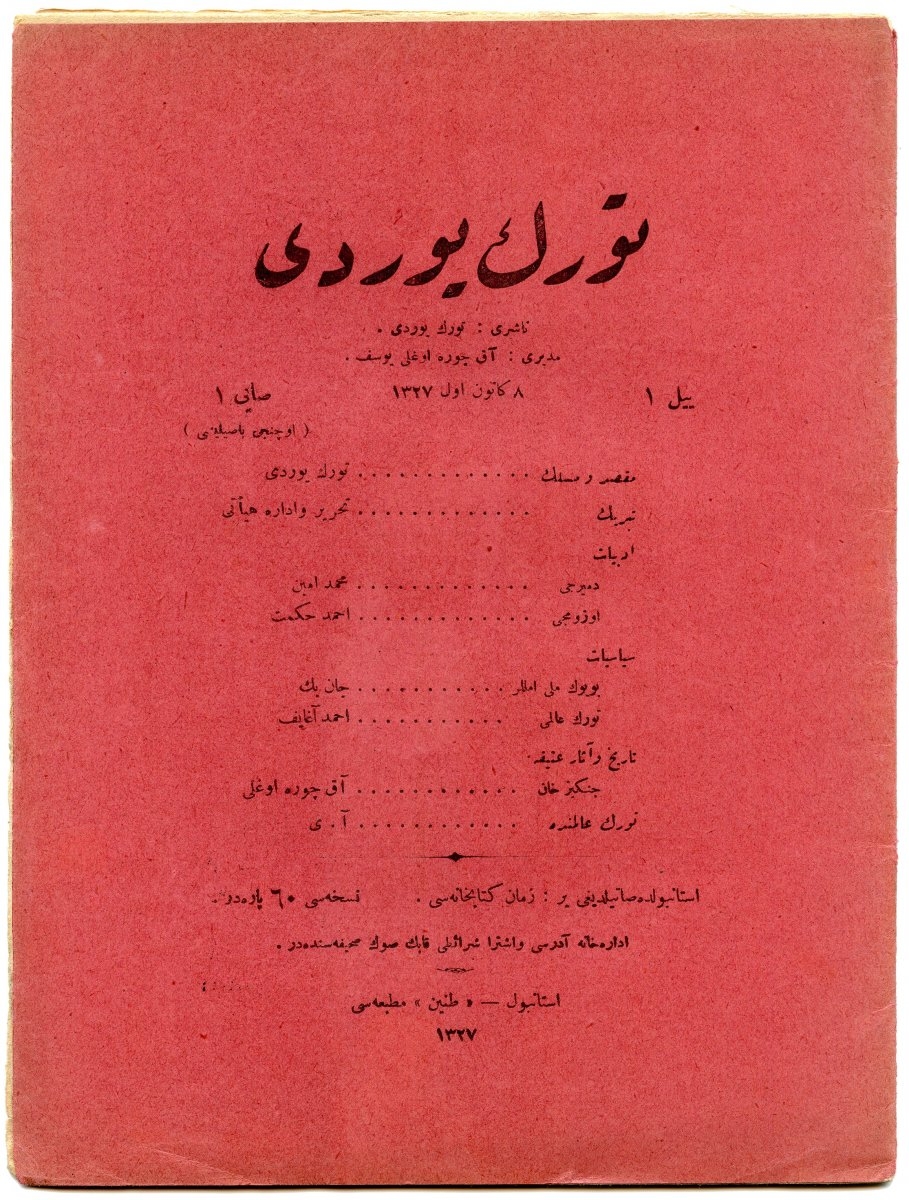 تورك يوردى
ناشرى : تورك يوردى .
مديرى : آق چوره اوغلى يوسف .
ييل ١ ٨ كانون اول ١٣٢٧ صايى ١
( اوچنجى باصيليشى )
مقصد و مسلك . . . . . . . . . . . . . تورك يوردى
تبريك . . . . . . . . . . . . . تحرير و اداره هيأتى
ادبيات
دميرجى . . . . . . . . . . . . . محمد امين
اوزومجى . . . . . . . . . . . . . احمد حكمت
سياسيات
بويوك ملى امللر . . . . . . . . . . . جان بك
تورك عالمى . . . . . . . . . . . احمد آغايف
تاريخ و آثار عتيقه
جنكيز خان . . . . . . . . . . . . آق چوره اوغلى
تورك عالمنده . . . . . . . . . . . . آ . ى
استانبولده صاتيلديغى ير : زمان كتابخانه‌سى . نسخه‌سى ٦٠ پاره‌در .
اداره‌خانه آدرسى و اشترا شرائطى قابك صوك صحيفه‌سنده‌در .
استانبول — « طنين » مطبعه‌سى
١٣٢٧